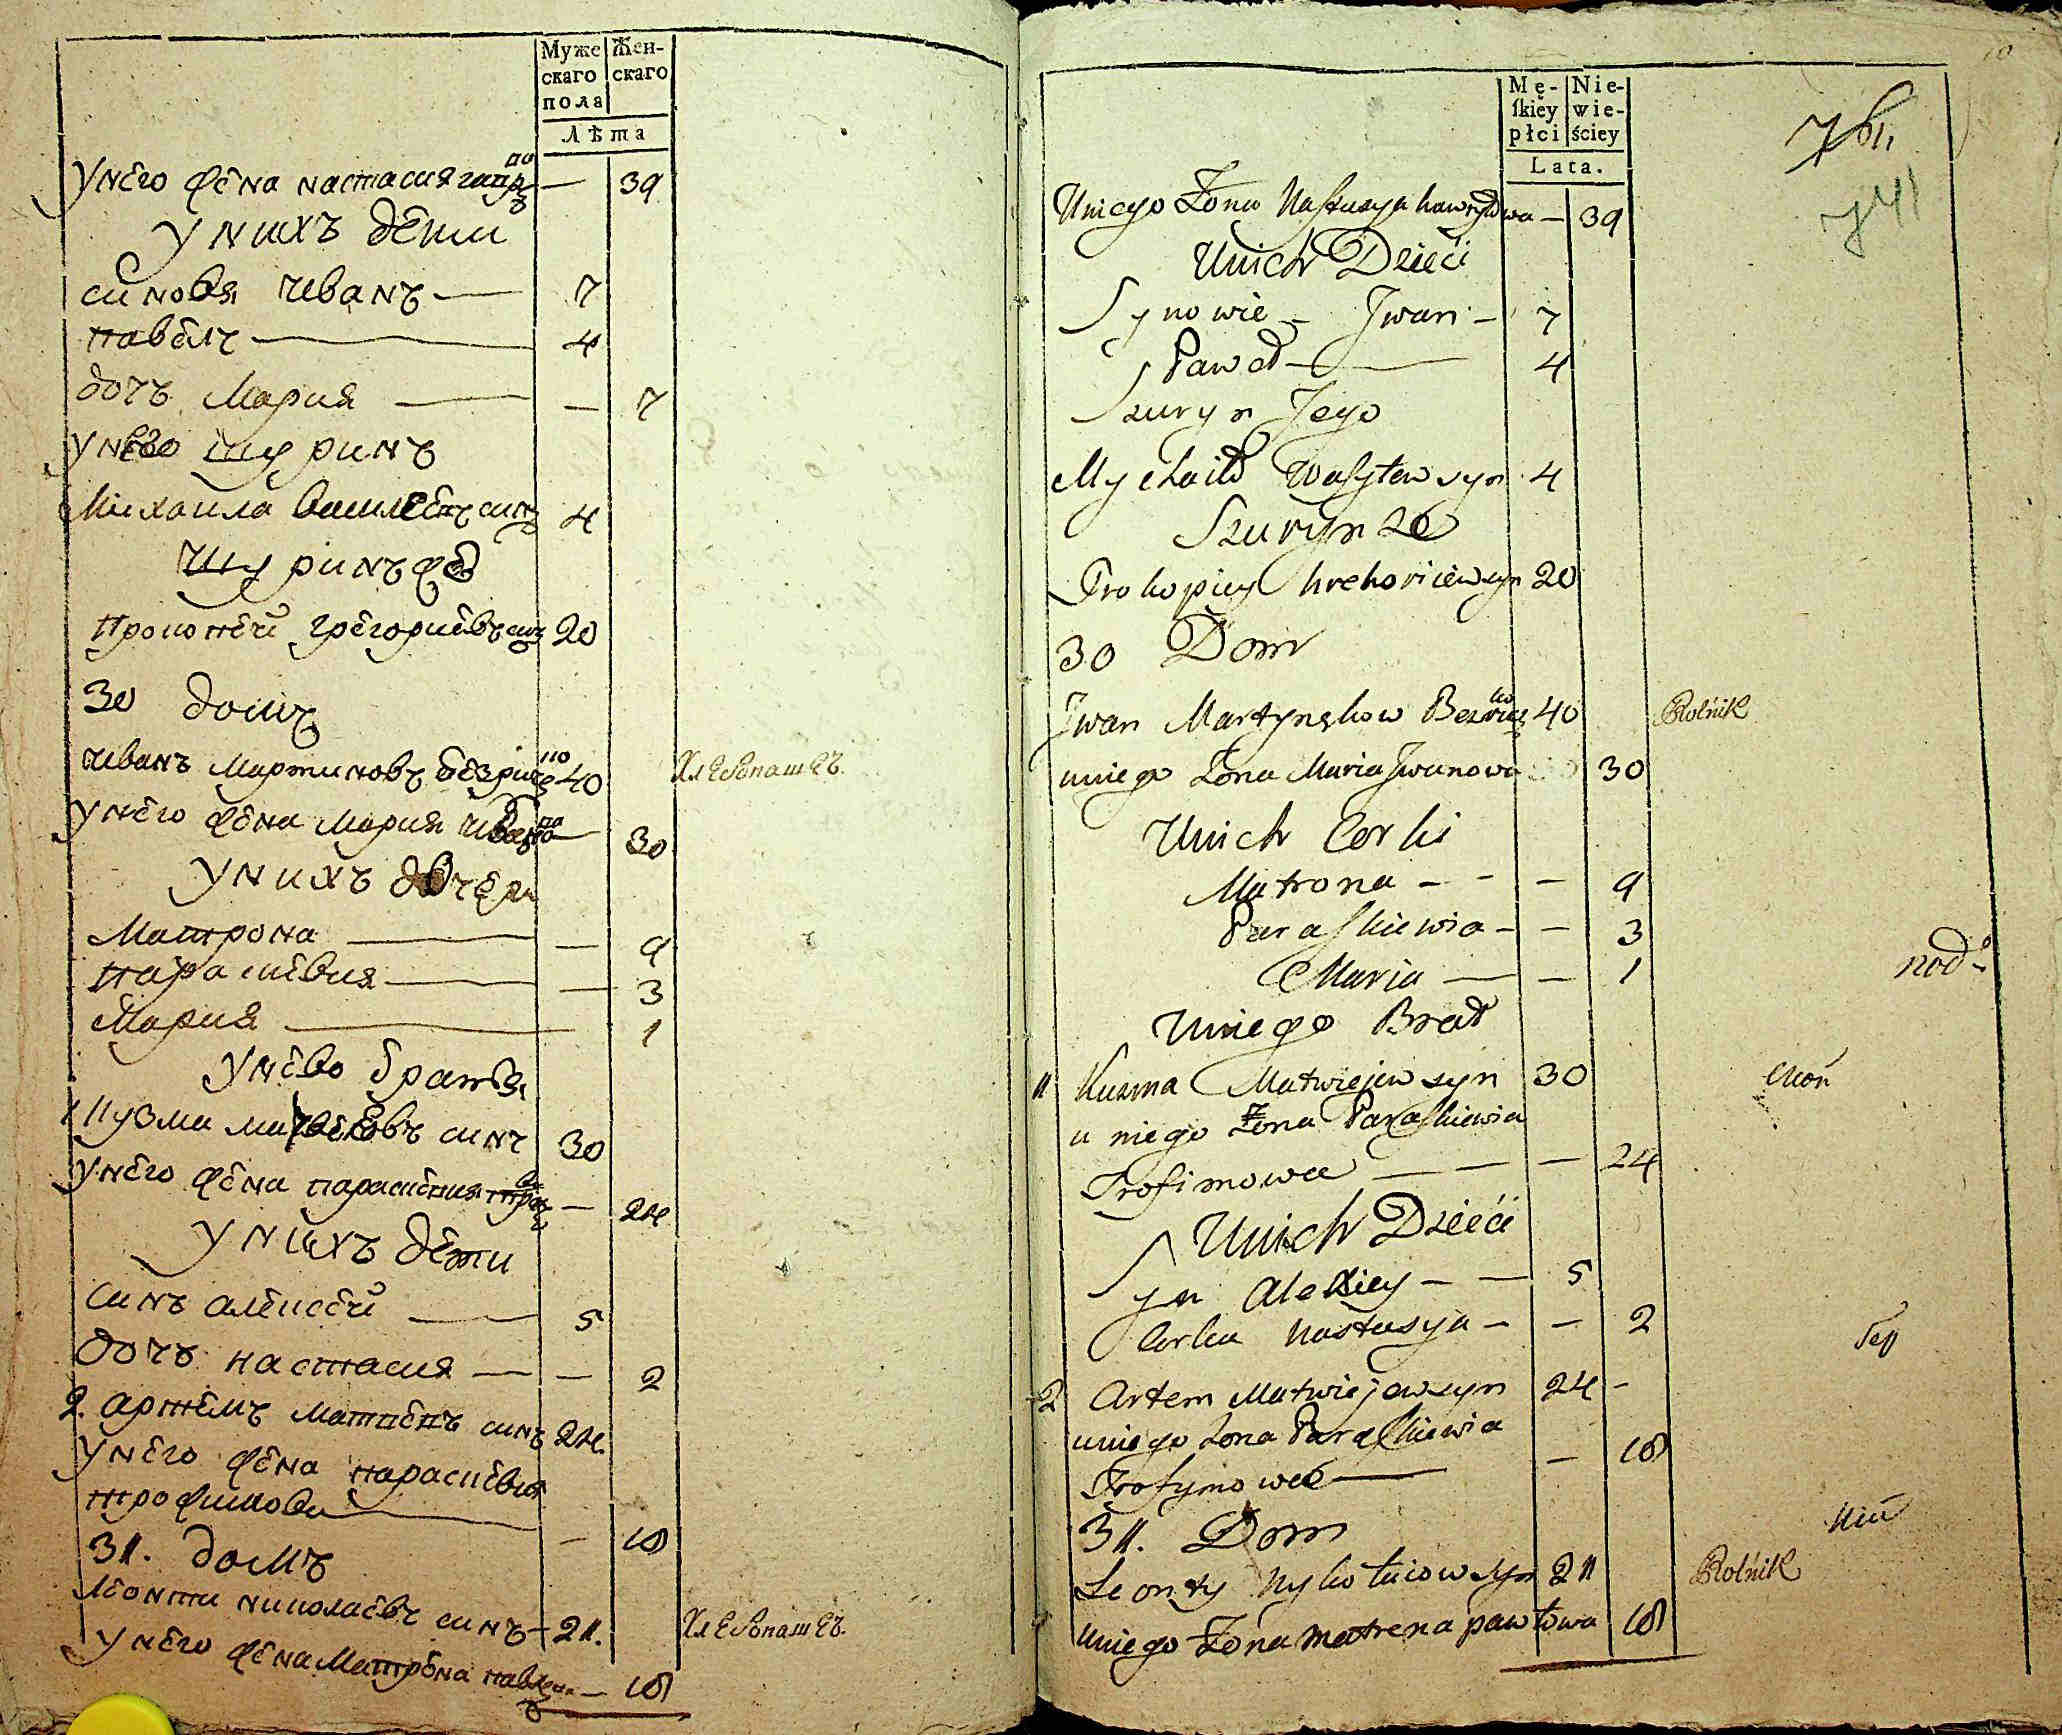 Муже Жен-
скаго скаго
пола
Лѣта
У него жена настасия 39
У нихъ дети
синовя иванъ 7
павелъ 4
дочъ Мария 7
У него шуринъ
Михаила василевъ синъ 4
шуринъ же
прокопей григориевъ синъ 20
30 домъ
иванъ мартиновъ 40 Хлебопашецъ
У него жена мария 30
У нихъ дочери
Матрона 9
параскевия 3
Мария 1
У нево братья
1 кузма матвеевъ синъ 30
У него жена параскевия 24
У нихъ дети
синъ алексей 5
дочъ настасия 2
2. артемъ матвеевъ синъ 24
У него жена параскевия
трофимова 18
31. домъ
леонти николаевъ синъ 21. Хлебопашецъ
У него жена Матрона 18
Mę- Nie-
skiey wie-
płci ściey
Lata.
741
Uniego Żona Nastasya hawryłowa 39
Unich Dzieci
Synowie Jwan 7
Paweł 4
Szuryn Jego
Mychaiło Wasylew syn 4
Szuryn że
Prokopiey hrehoriiew syn 20
30 Dom
Jwan Martynskow 40 Rolnik
uniego żona Maria Jwanowa 30
Unich Corki
Matrona 9
Paraskiewia 3
Maria 1
Uniego Brat
1 Kuzma Matwiejew syn 30
u niego Żona Paraskiewia
Trofimowa 24
Unich Dzieci
Syn Alexiey 5
Corka Nastasya 2
2 Artem Matwiejew syn 24
uniego żona Paraskiewia
Trofymowa 18
31. Dom
Leonty Nykołaiow syn 21 Rolnik
uniego Żona Matrena pawłowa 18